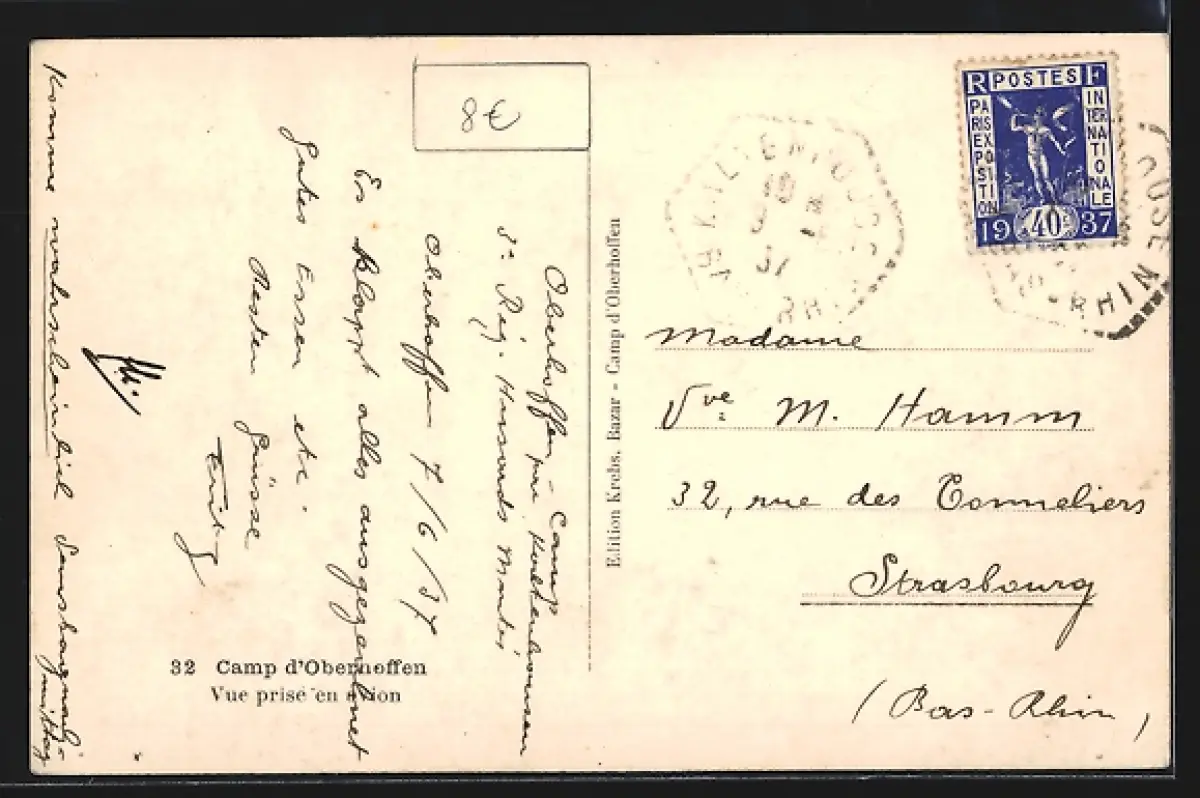 Oberhoffen, Camp
près Kaltenhausen
3e Rég. Hussards Montés
Oberhoffen 7/6/37
Es klappt alles ausgezeichnet
Gutes Essen etc.
Besten Grüsse
Komme warscheinlich Samstagnach-
mittag
8€
32 Camp d'Oberhoffen
Vue prise en avion
Edition Krebs, Bazar - Camp d'Oberhoffen
RF POSTES
PARIS EXPOSITION
INTERNATIONALE
1937
40c
RHIN
Madame
Vve M. Hamm
32, rue des Tonneliers
Strasbourg
(Bas-Rhin)